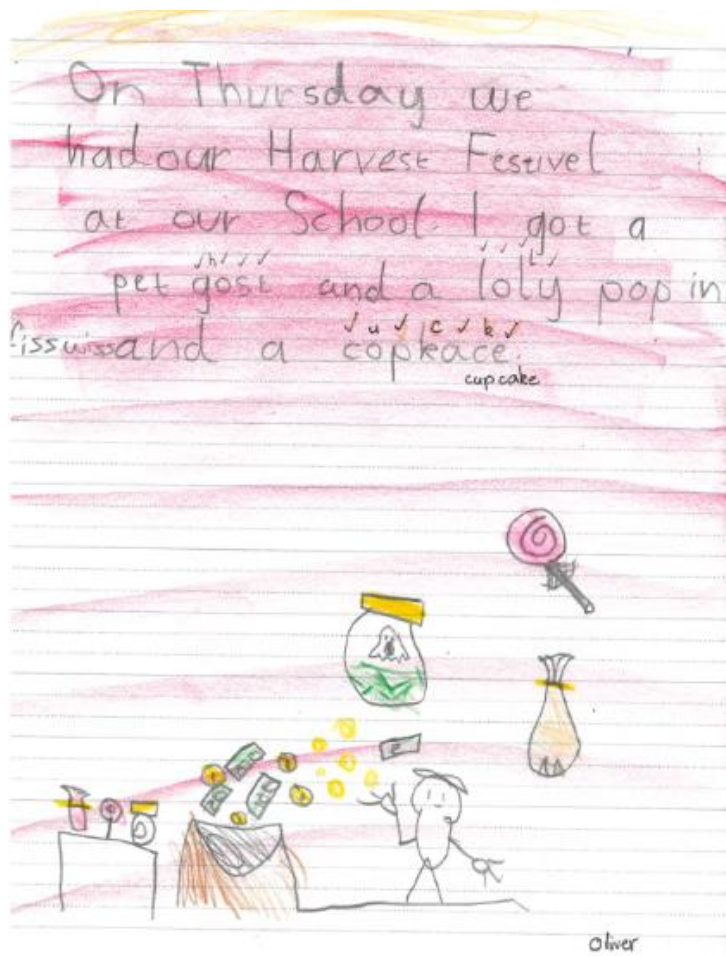 On Thursday we
had our Harvest Festivel
at our School. I got a
✓ h ✓ ✓ ✓ ✓ ✓ ✓ l ✓
pet gost and a loly pop in
✓ u ✓ c ✓ k ✓
and a copkace.
cupcake
Oliver